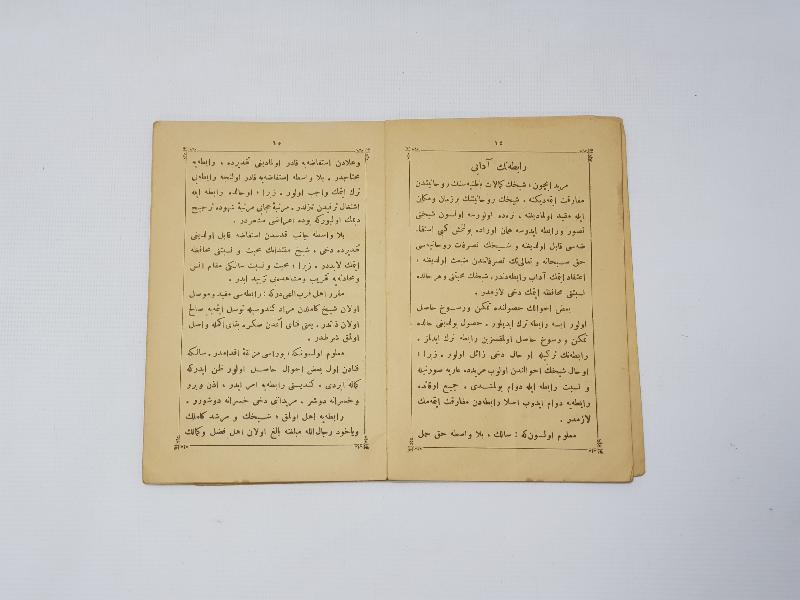 ١٤
رابطه‌نك آدابی
مريد ايچون ، شيخك كمالات وطيبه‌سنك روحانيتندن
مفارقت ايتمه‌ديكنه . شيخك روحانيتنك برزمان ومكان
ايله مقيد اولماديغنه ، نره‌ده اولورسه اولسون شيخنی
تصور ورابطه ايدرسه همان اوراده بولنمش كبی استفا-
ضه‌سی قابل اولديغنه و شيخك تصرفات روحانيه‌سی
حق سبحانه و تعالی‌نك تصرفاتندن منبعث اولديغنه ،
اعتقاد ايتمك آداب رابطه‌دندر ، شيخك محبتنی وهر حالده
نسبتنی محافظه ايتمك دخی لازمدر .
بعض احوالك حصولنده تمكن ورسوخ حاصل
اولور ايسه رابطه ترك ايديلور . حصول بولديغی حالده
تمكن و رسوخ حاصل اولمقسزين رابطه ترك ايدلز .
رابطه‌نك تركيله او حال دخی زائل اولور . زيرا ؛
او حال شيخك احوالندن اولوب مريدده عاريه صورتيله
و نسبت رابطه ايله دوام بولمشدی . جميع اوقاتده
رابطه‌يه دوام ايدوب اصلا رابطه‌دن مفارقت ايتمه‌مك
لازمدر .
معلوم اولسون كه : سالك ، بلا واسطه حق جل
١٥
وعلادن استفاضه‌يه قادر اولمادیغی تقديرده ، رابطه‌يه
محتاجدر . بلا واسطه استفاضه‌يه قادر اولنجه رابطه‌ی
ترك ايتمك واجب اولور . زيرا ؛ اوحالده رابطه ايله
اشتغال ترقيدن تنزلدر . مرتبۀ حجابی مرتبۀ شهوده ترجيح
ديمك اولورکه بوده اعراضی مشعردر .
بلا واسطه جانب قدسدن استفاضه قابل اولديغی
تقديرده دخی ، شيخ مقتدابك محبت و نسبتنی محافظه
ايتمك لابددر . زيرا ؛ محبت و نسبت سالكی مقام انس
ومحادثه‌يه تقريب ومشاهده‌سنی تزييد ايدر .
مقرر اهل قرب الهی‌درکه : رابطه‌سی مفيد وموصل
اولان شيخ كامندن مراد كندوسيله توسل ايتمه‌يه صالح
اولان ذاتدر . يعنی فنای اتمدن صكره بقای اكمله واصل
اولمق شرطدر .
معلوم اولسونكه ؛ بوراسی مزلقۀ اقدامدر . سالكه
فنادن اول بعض احوال حاصل اولور ظن ايدركه
كماله ايردی . كنديسنی رابطه‌يه امر ايدر ، اذن ويرر
و خسرانه دوشر . مريدلانی دخی خسرانه دوشورر .
رابطه‌يه اهل اولمق ؛ شيخك و مرشد كاملك
وياخود رجال‌الله مبلغنه بالغ اولان اهل فضل وكمالك